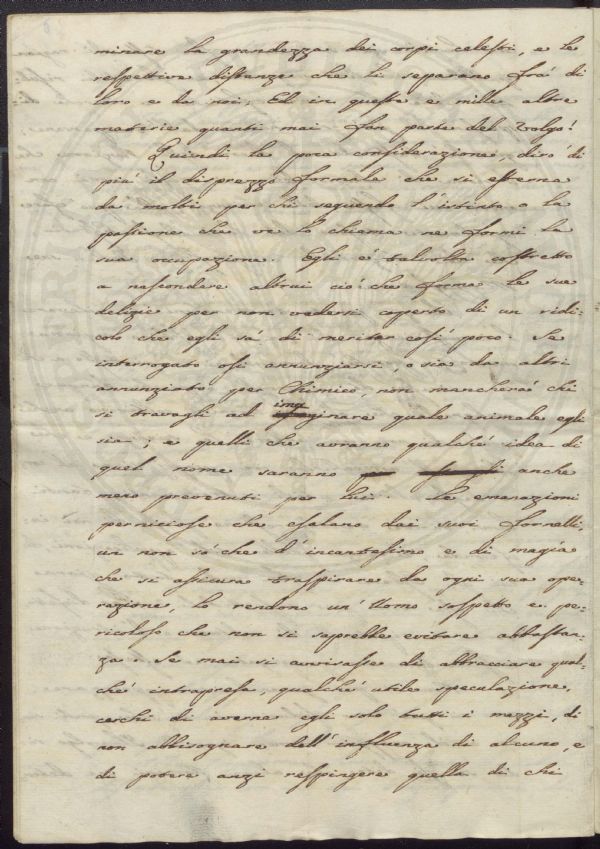 minare la grandezza dei corpi celesti, e le
respettive distanze che li separano frà di
loro e da noi; Ed in queste e mille altre
materie quanti mai fan parte del Volgo!
Quindi la poca considerazione, dirò di
più il disprezzo formale che si esterna
da molti per chi seguendo l'istinto o la
passione che ve lo chiama ne formi la
sua occupazione. Egli è talvolta costretto
a nascondere altrui ciò che forma le sue
delizie per non vedersi coperto di un ridi=
colo che egli sà di meritar così poco. Se
interrogato osi annunziarsi, o sia da altri
annunziato per Chimico, non mancherà chi
si travagli ad imaginare quale animale egli
sia; e quelli che avranno qualche idea di
quel nome saranno anche
meno prevenuti per lui. Le emanazioni
perniciose che esalano dai suoi fornelli,
un non sò che d'incantesimo e di magia
che si assicura traspirare da ogni sua ope=
razione, lo rendono un'Uomo sospetto e pe=
ricoloso che non si saprebbe evitare abbastan=
za. Se mai si avvisasse di abbracciare qual=
ché intrapresa, qualché utile speculazione,
cerchi di averne egli solo tutti i mezzi, di
non abbisognare dell'influenza di alcuno, e
di potere anzi respingere quella di chi